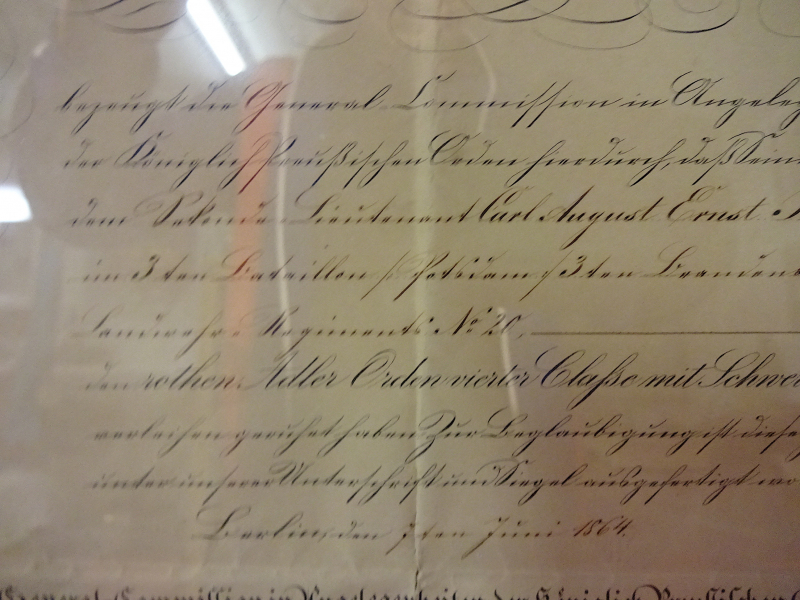 bezeugt die General-Commission in Angeleg
der Königlich Preußischen Orden hierdurch, daß Sein
dem Sekonde-Lieutenant Carl August Ernst
im 3ten Bataillon /: Potsdam :/ 3ten Brandenb
Landwehr-Regiments No 20,
den rothen Adler Orden vierter Claße mit Schwer
verleihen geruhet haben. Zur Beglaubigung ist diese
unter unserer Unterschrift und Siegel ausgefertigt wo
Berlin, den 7ten Juni 1864.
General-Commission in Angelegenheiten der Königlich Preußischen